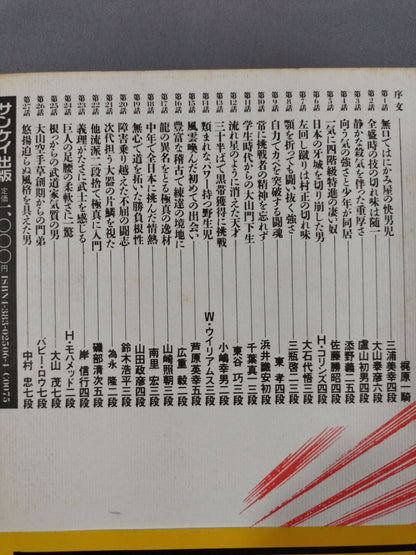 序文 梶原一騎
第1話 無口ではにかみ屋の快男児 三浦美幸四段
第2話 全盛時の技の切れ味は随一 大山泰彦六段
第3話 静かな殺気を秘めた重厚さ 盧山初男四段
第4話 向う気の強さと少年が同居 添野義二五段
第5話 一気に四階級特進の凄い奴 佐藤勝昭四段
第6話 日本の牙城を切り崩した男 H・コリンズ四段
第7話 左回し蹴りは村正の切れ味 大石代悟三段
第8話 顎を折っても闘い抜く強さ 三瓶啓二三段
第9話 自力でカベを突破する闘魂 東 孝四段
第10話 常に挑戦者の精神を忘れず 浜井識安初段
第11話 学生時代からの大山門下生 千葉真一三段
第12話 流れ星のように消えた天才 東谷 巧三段
第13話 三十半ばで黒帯獲得に挑戦 小嶋幸男二段
第14話 類まれなパワー持つ野生児 W・ウイリアムス三段
第15話 風雲喚んだ初めての出会い 芦原英幸五段
第16話 豊富な稽古で練達の境地に 広重 毅二段
第17話 龍の異名をとる極真の逸材 山崎照朝三段
第18話 中年で全日本に挑んだ情熱 南里 宏三段
第19話 無心で道を拓いた勝負根性 山田政彦四段
第20話 障害乗り越えた不屈の闘志 鈴木浩平三段
第21話 次代担う大器の片鱗を視た 為永 隆二段
第22話 他流派三段捨て極真に入門 磯部清次五段
第23話 義理がたさに武士を感じる 岸 信行四段
第24話 巨人の足腰の柔軟さに一驚 H・モハメッド二段
第25話 根っからの武道家気質の男 大山 茂七段
第26話 大山空手草創期からの門弟 バビー・ロウ七段
第27話 悠揚迫らぬ風格を具えた男 中村 忠七段
サンケイ出版 定価一、〇〇〇円 ISBN4-383-02506-4 C0075